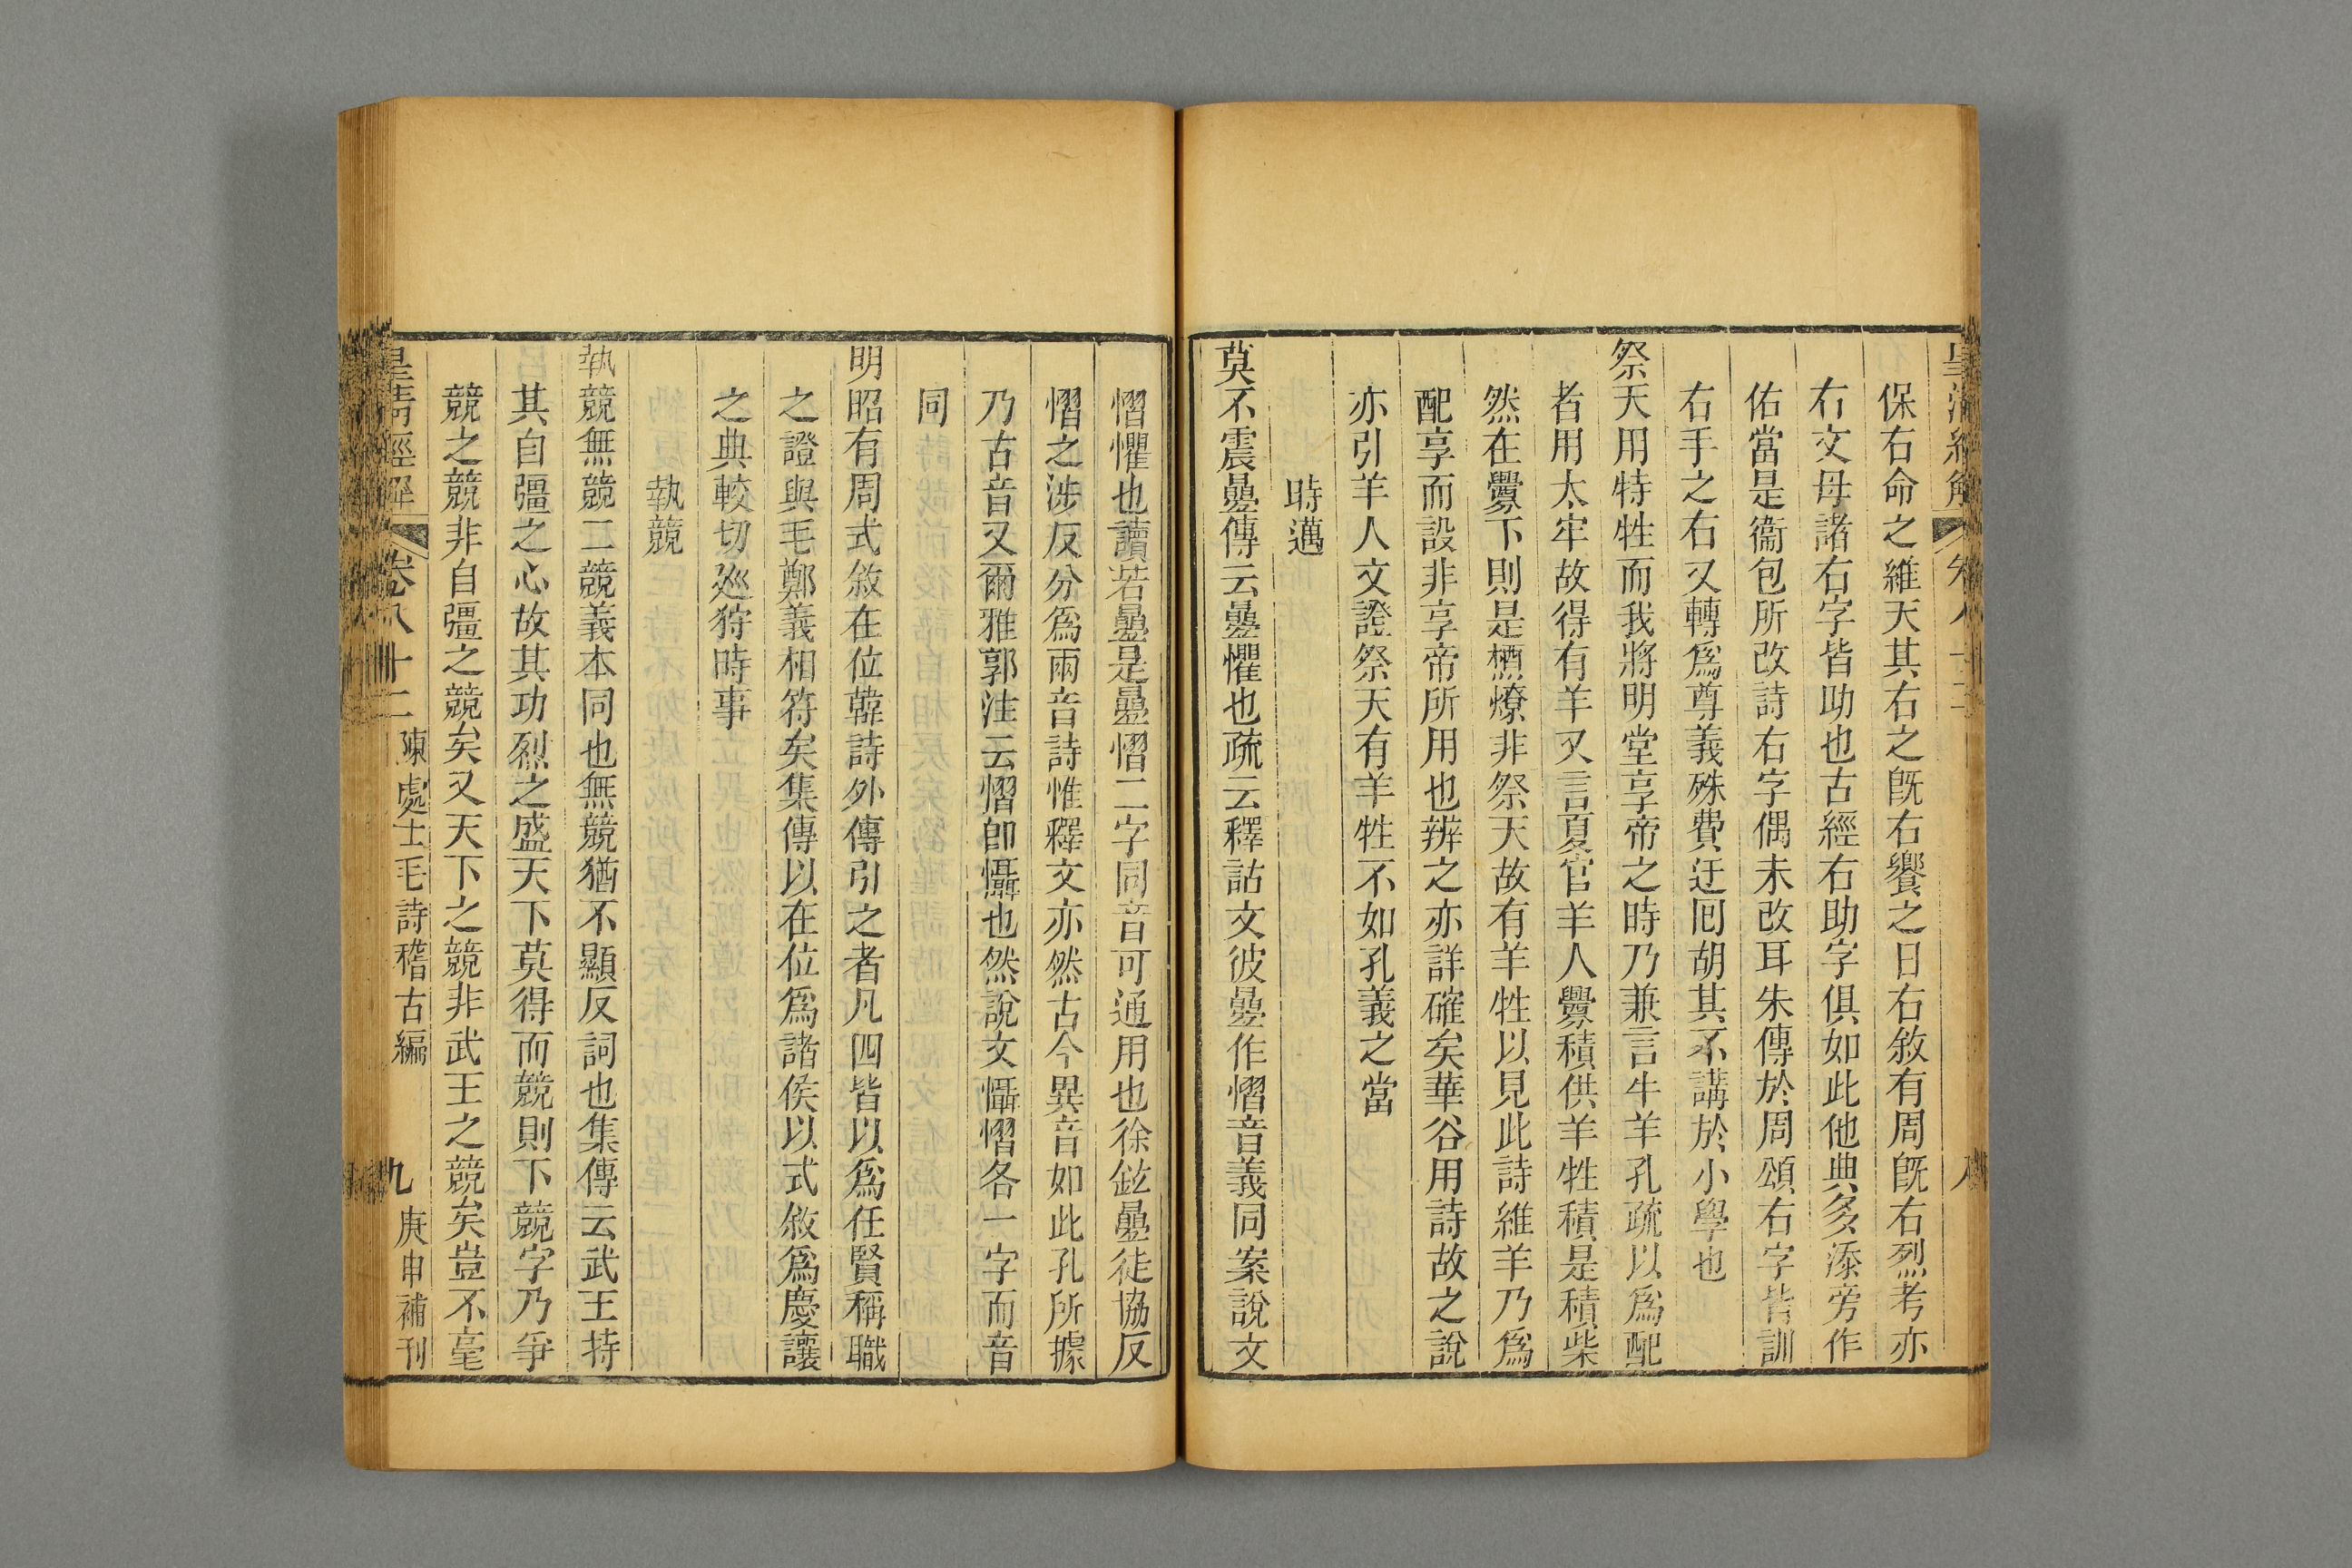 保右命之維天其右之旣右饗之日右敘有周旣右烈考亦
右文母諸右字皆助也古經右助字俱如此他典多添旁作
佑當是衞包所改詩右字偶未改耳朱傳於周頌右字皆訓
右手之右又轉爲尊義殊費迂囘胡其不講於小學也
祭天用特牲而我將明堂享帝之時乃兼言牛羊孔疏以爲配
者用太牢故得有羊又言夏官羊人釁積供羊牲積是積柴
然在釁下則是槱燎非祭天故有羊牲以見此詩維羊乃爲
配享而設非享帝所用也辨之亦詳確矣華谷用詩故之說
亦引羊人文證祭天有羊牲不如孔義之當
時邁
莫不震疊傳云疊懼也疏云釋詁文彼疊作慴音義同案說文
慴懼也讀若疊是疊慴二字同音可通用也徐鉉疊徒協反
慴之涉反分爲兩音詩惟釋文亦然古今異音如此孔所據
乃古音又爾雅郭注云慴卽懾也然說文懾慴各一字而音
同
明昭有周式敘在位韓詩外傳引之者凡四皆以爲任賢稱職
之證與毛鄭義相符矣集傳以在位爲諸侯以式敘爲慶讓
之典較切廵狩時事
執競
執競無競二競義本同也無競猶不顯反詞也集傳云武王持
其自彊之心故其功烈之盛天下莫得而競則下競字乃爭
競之競非自彊之競矣又天下之競非武王之競矣豈不毫
皇淸經解
卷八十二
陳處士毛詩稽古編
九
庚申補刊